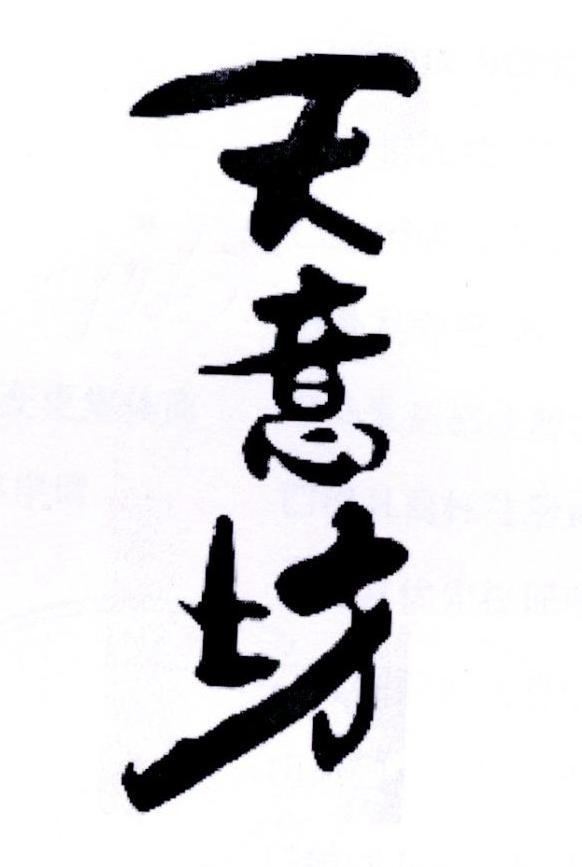 天意坊